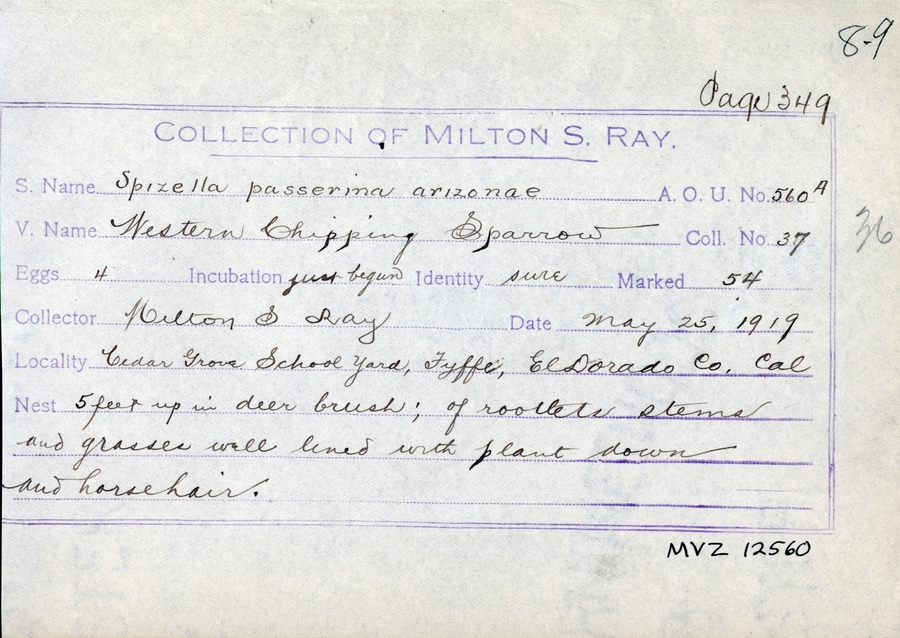 8-9
Page 349
COLLECTION OF MILTON S. RAY.
S. Name Spizella passerina arizonae A. O. U. No. 560 A
V. Name Western Chipping Sparrow Coll. No. 37
36
Eggs 4 Incubation just begun Identity sure Marked 54
Collector Milton S Ray Date May 25, 1919
Locality Cedar Grove School Yard, Fyffe, El Dorado Co. Cal
Nest 5 feet up in deer brush; of rootlets stems
and grasses well lined with plant down
and horsehair.
MVZ 12560